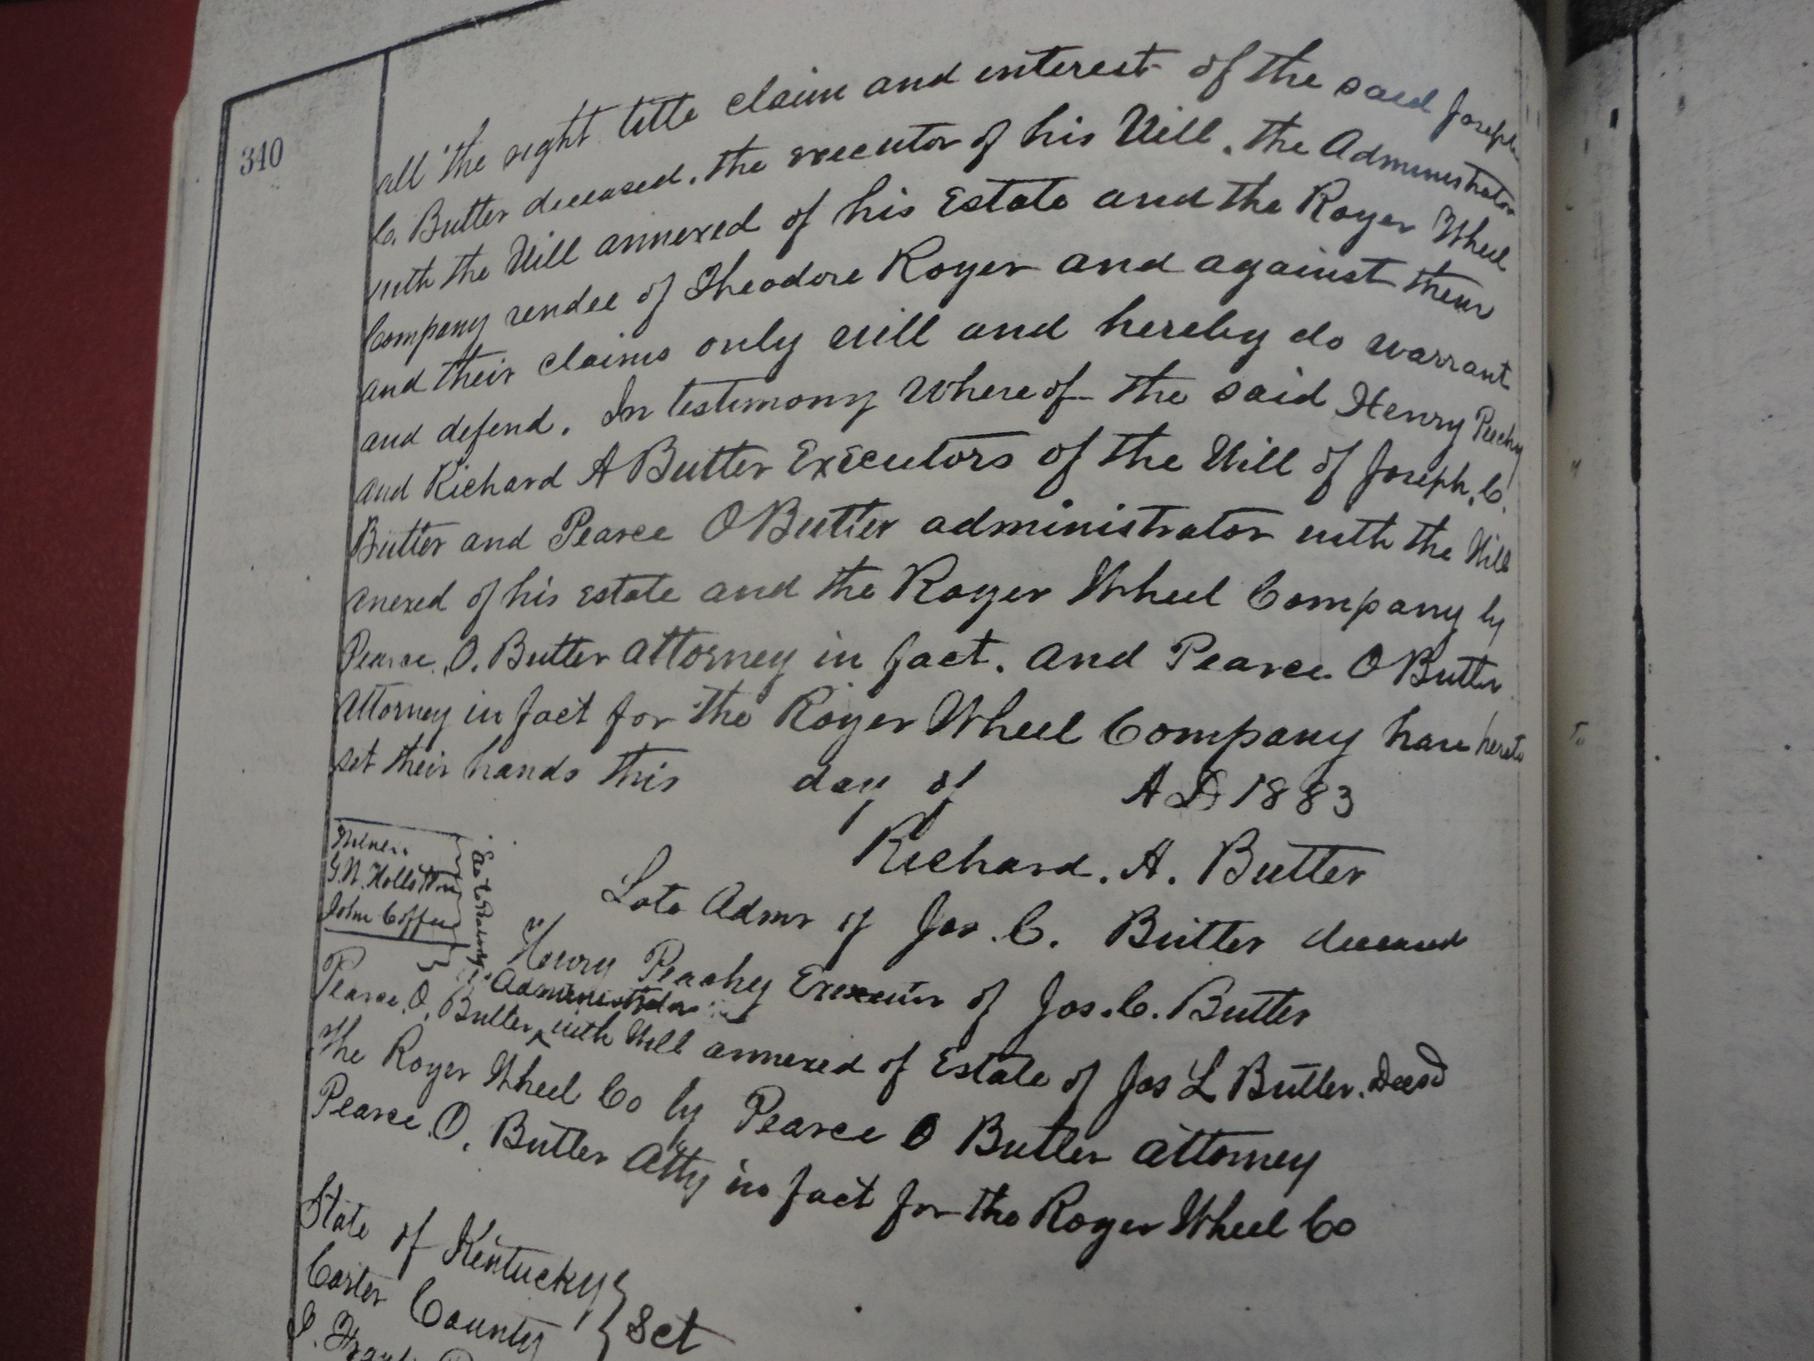 340
all the right title claim and interest of the said Joseph
C. Butter deceased, the executor of his Will, the Administrator
with the Will annexed of his Estate and the Royer Wheel
Company vendee of Theodore Royer and against them
and their claims only will and hereby do warrant
and defend. In testimony whereof the said Henry Peachy
and Richard A Butter Executors of the Will of Joseph. C.
Butter and Pearce O Butter administrator with the Will
anexed of his Estate and the Royer Wheel Company by
Pearce. O. Butter attorney in fact. and Pearce O Butter
Attorney in fact for the Royer Wheel Company have hereto
set their hands this day of A D 1883
Richard. A. Butter
Late Admr of Jos. C. Butter deceased
Witness
John Coffee
Henry Peachy Executor of Jos. C. Butter
Administrator
Pearce. O. Butler ^ with Will annexed of Estate of Jos L Butler. Decsd
The Royer Wheel Co by Pearce O Butler attorney
Pearce. O. Butler Atty in fact for the Royer Wheel Co
State of Kentucky }
Carter County } Sct